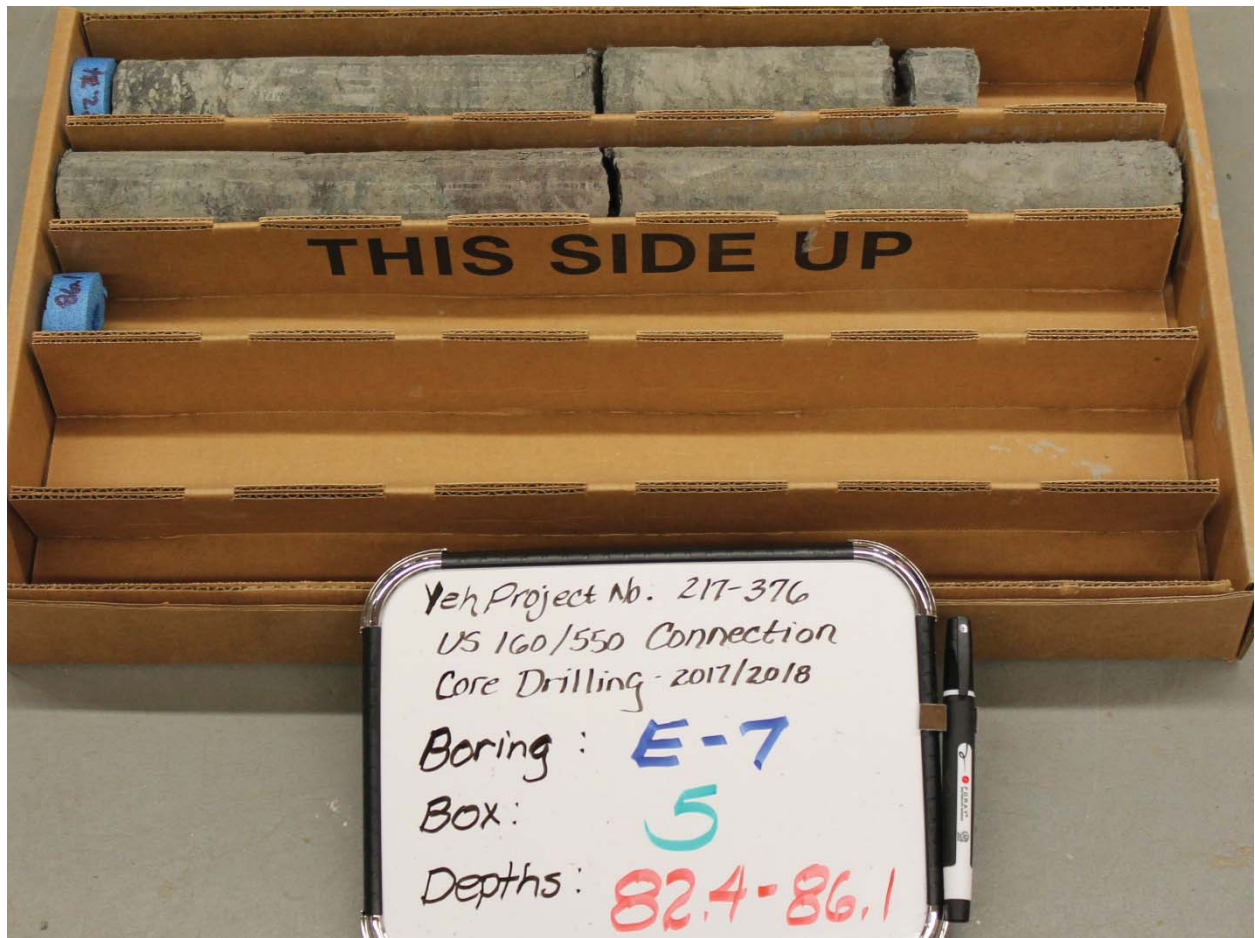 86.1
THIS SIDE UP
Yeh Project No. 217-376
US 160/550 Connection
Core Drilling - 2017/2018
Boring: E-7
Box: 5
Depths: 82.4-86.1